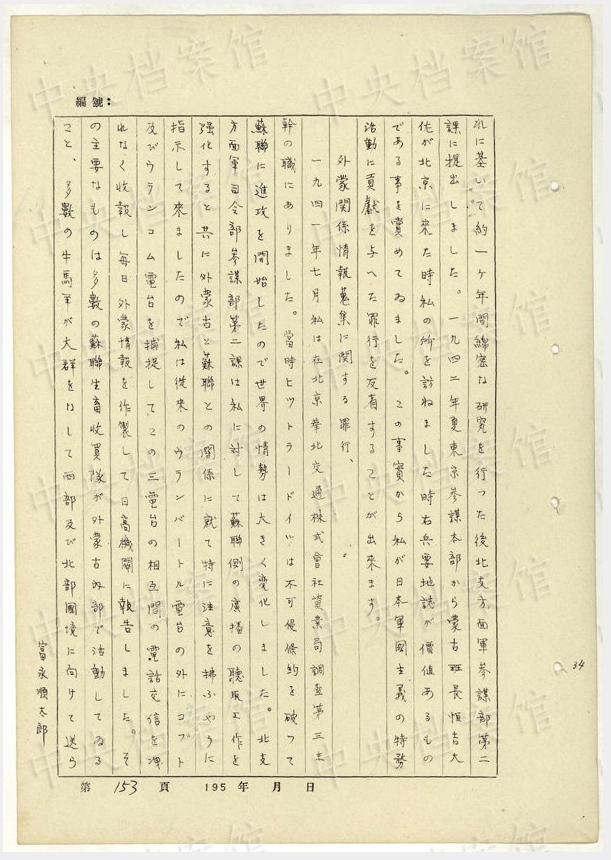 編號：
れに基いて約一ヶ年間綿密な研究を行つた後北支方面軍参謀部第二
課に提出しました。一九四二年夏東京参謀本部から蒙古班長恒吉大
佐が北京に来た時私の所を訪ねました時右兵要地誌が價値あるもの
である事を賞めてゐました。この事實から私が日本軍國主義の特務
活動に貢献を与へた罪行を反省することが出来ます。
外蒙関係情報蒐集に関する罪行、
一九四一年七月私は在北京華北交通株式會社資業局調査第三主
幹の職にありました。當時ヒットラードイツは不可侵條約を破つて
蘇聯に進攻を開始したので世界の情勢は大きく変化しました。北支
方面軍司令部参謀部第二課は私に対して蘇聯側の廣播の聴取工作を
强化すると共に外蒙古と蘇聯との関係に就て特に注意を拂ふやうに
指示して來ましたので私は従来のウランバートル電台の外にコブト
及びウランコム電台を捕捉してこの三電台の相互間の電話交信を洩
れなく收報し毎日外蒙情報を作製して日高機関に報告しました。そ
の主要なものは多數の蘇聯生畜收買隊が外蒙古内部で活動してゐる
こと、多數の牛馬羊が大群をなして西部及び北部國境に向けて送ら
富永順太郎
34
第 153 頁 195 年 月 日
中央档案馆